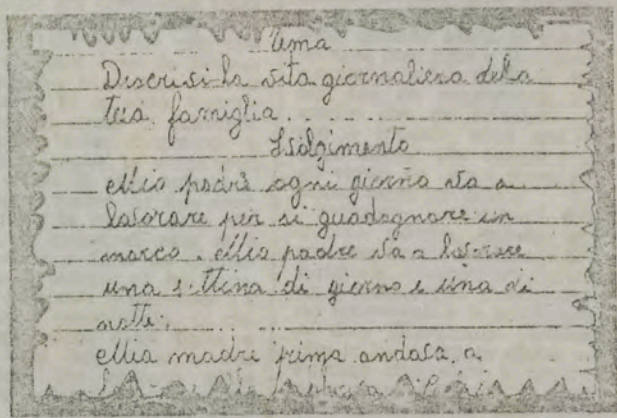 Tema
Discrisi la vita giornaliera dela
tua famiglia.
Svolgimento
Mio padre ogni giorno va a
lavorare per si guadagnare un
marco. Mio padre va a lavorare
una settina di giorno e una di
notte.
Mia madre prima andava a